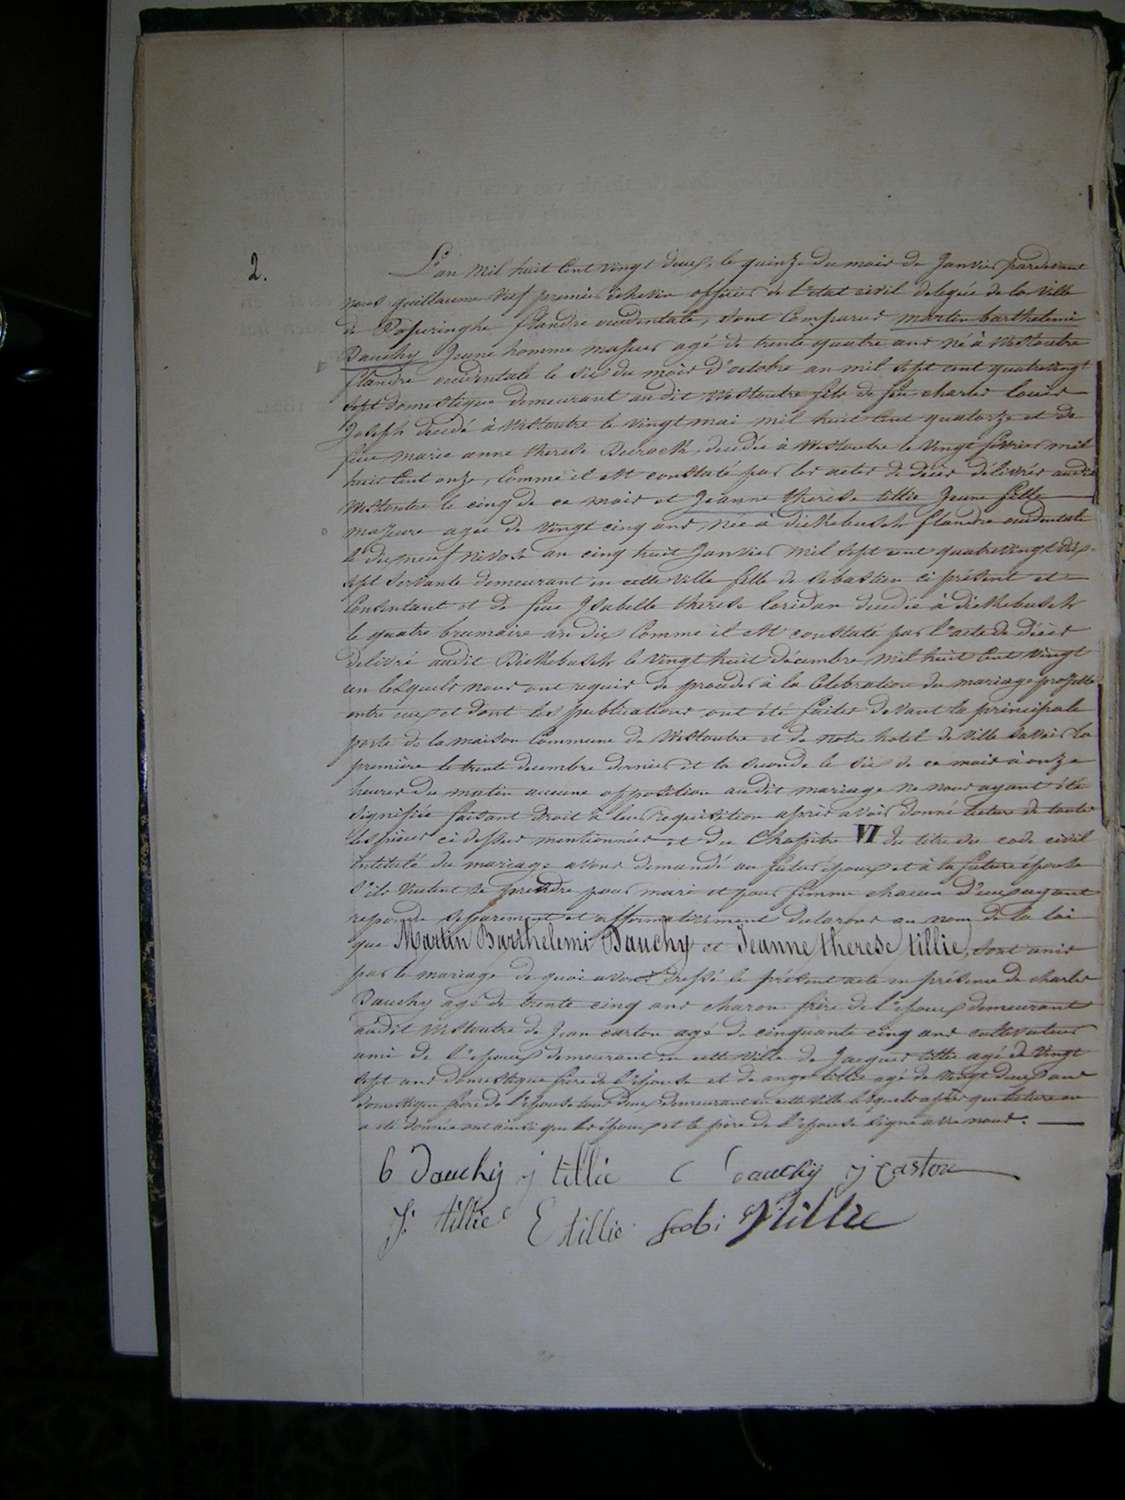 2.
L'an mil huit cent vingt deux, le quinze du mois de Janvier pardevant
nous guillaume premier échevin officier de l'état civil delegée de la ville
de Poperinghe flandre occidentale, sont comparus martin barthelemi
Dauchy Jeune homme majeur agé de trente quatre ans né à Westoutre
flandre occidentale le six du mois d'octobre an mil sept cent quatrevingt
sept domestique demeurant audit Westoutre fils de feu charles louis
Joseph decedé à Westoutre le vingt mai mil huit cent quatorze et de
feue marie anne therese decedée à Westoutre le vingt fevrier mil
huit cent onze, comme il est constaté par les actes de décès délivrés audit
Westoutre le cinq de ce mois et Jeanne therese tillie Jeune fille
majeure agée de vingt cinq ans née à dickebusch flandre occidentale
le dix neuf nivose an cinq huit Janvier mil sept cent quatrevingt dix-
sept servante demeurant en cette ville fille de Sébastien ci présent et
consentant et de feue Isabelle therese loridan decedée à dickebusch
le quatre brumaire an dix comme il est constaté par l'acte de décès
delivré audit Dickebusch le vingt huit décembre mil huit cent vingt
un lesquels nous ont requis de proceder à la célébration du mariage projetté
entre eux et dont les publications ont été faites devant la principale
porte de la maison commune de Westoutre et de notre hotel de ville savoir la
première le trente decembre dernier et la seconde le six de ce mois à onze
heures du matin aucune opposition audit mariage ne nous ayant été
signifiée faisant droit à leur requisition après avoir donné lecture de toutes
les pièces ci dessus mentionnées et du Chapitre VI du titre du code civil
intitulé du mariage avons demandé au futur époux et à la future épouse
s'ils veulent se prendre pour mari et pour femme chacun d'eux ayant
repondu séparement et affirmativement declarons au nom de la loi
que Martin Barthelemi Dauchy et Jeanne therese tillie, sont unis
par le mariage de quoi avons dressé le présent acte en présence de charles
Dauchy agé de trente cinq ans charon frère de l'époux demeurant
audit Westoutre de Jean carton agé de cinquante cinq ans cultivateur
ami de l'époux demeurant en cette ville de Jacques tillie agé de vingt
sept ans domestique frère de l'épouse et de ange tillie agé de vingt deux ans
domestique frère de l'épouse tous deux demeurant en cette ville lesquels après que lecture en
a été donnée ont ainsi que les époux et le père de l'épouse signé avec nous.
b Dauchy j tillie C Dauchy j carton
J: tillie E tillie Jacobi tillie